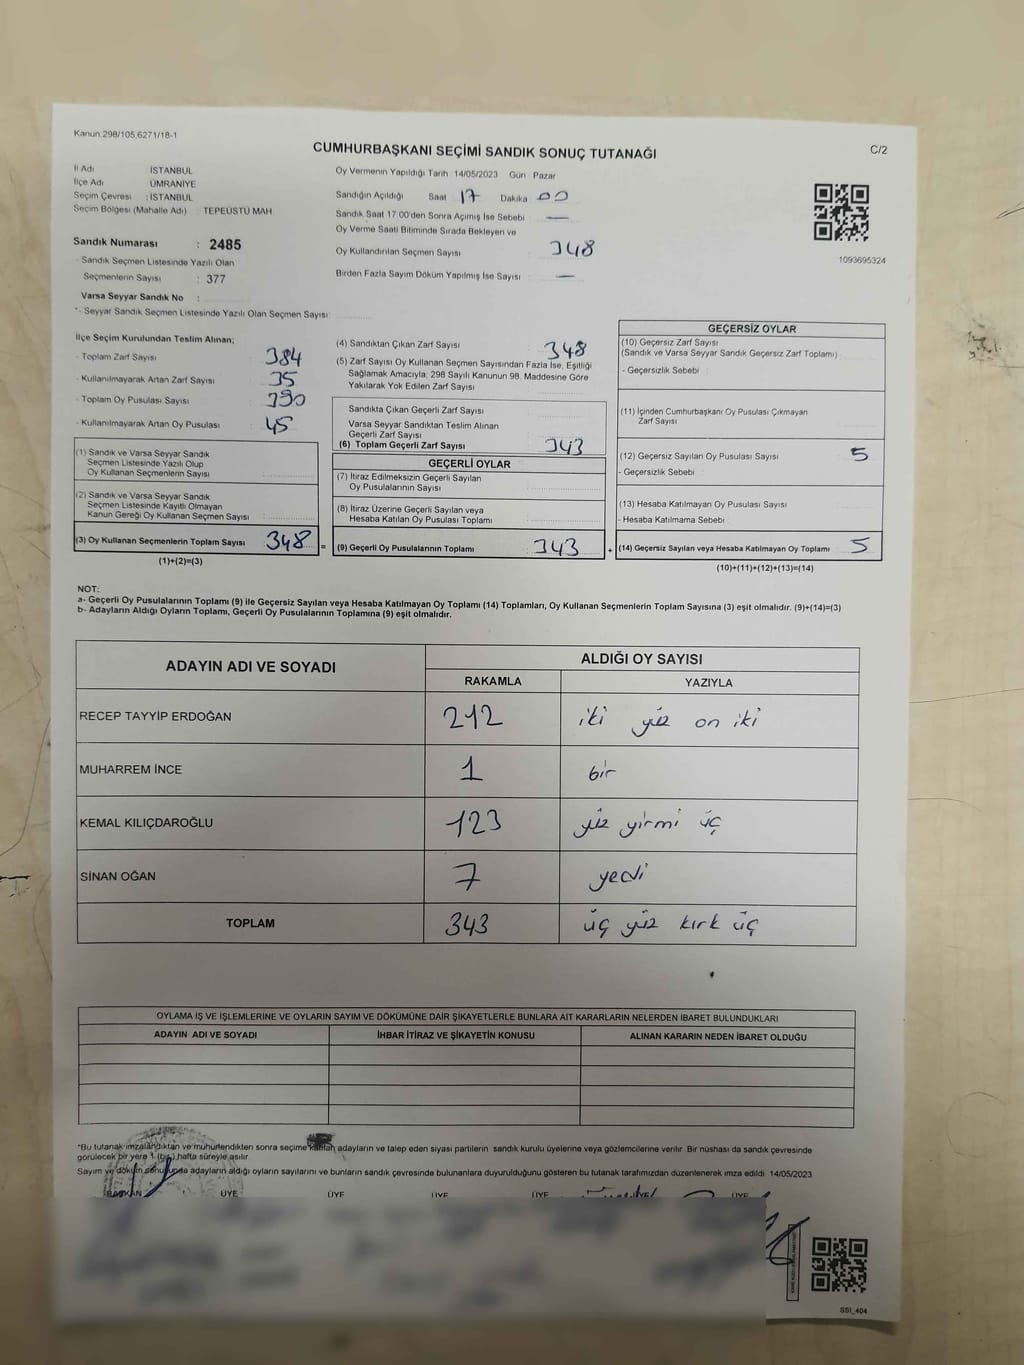 Kanun.298/105,6271/18-1
CUMHURBAŞKANI SEÇİMİ SANDIK SONUÇ TUTANAĞI
C/2
İl Adı İSTANBUL
İlçe Adı ÜMRANİYE
Seçim Çevresi : İSTANBUL
Seçim Bölgesi (Mahalle Adı) TEPEÜSTÜ MAH
Sandık Numarası : 2485
Sandık Seçmen Listesinde Yazılı Olan
Seçmenlerin Sayısı : 377
Varsa Seyyar Sandık No :
*- Seyyar Sandık Seçmen Listesinde Yazılı Olan Seçmen Sayısı
Oy Vermenin Yapıldığı Tarih 14/05/2023 Gün Pazar
Sandığın Açıldığı Saat 17 Dakika 00
Sandık Saat 17:00'den Sonra Açımış İse Sebebi —
Oy Verme Saati Bitiminde Sırada Bekleyen ve
Oy Kullandırılan Seçmen Sayısı 348
Birden Fazla Sayım Döküm Yapılmış İse Sayısı —
1093695324
İlçe Seçim Kurulundan Teslim Alınan;
- Toplam Zarf Sayısı 384
- Kullanılmayarak Artan Zarf Sayısı 35
- Toplam Oy Pusulası Sayısı 390
- Kullanılmayarak Artan Oy Pusulası 45
(1) Sandık ve Varsa Seyyar Sandık
Seçmen Listesinde Yazılı Olup
Oy Kullanan Seçmenlerin Sayısı
(2) Sandık ve Varsa Seyyar Sandık
Seçmen Listesinde Kayıtlı Olmayan
Kanun Gereği Oy Kullanan Seçmen Sayısı
(3) Oy Kullanan Seçmenlerin Toplam Sayısı 348 =
(1)+(2)=(3)
(4) Sandıktan Çıkan Zarf Sayısı 348
(5) Zarf Sayısı Oy Kullanan Seçmen Sayısından Fazla İse, Eşitliği
Sağlamak Amacıyla, 298 Sayılı Kanunun 98. Maddesine Göre
Yakılarak Yok Edilen Zarf Sayısı
Sandıkta Çıkan Geçerli Zarf Sayısı
Varsa Seyyar Sandıktan Teslim Alınan
Geçerli Zarf Sayısı
(6) Toplam Geçerli Zarf Sayısı 343
GEÇERLİ OYLAR
(7) İtiraz Edilmeksizin Geçerli Sayılan
Oy Pusulalarının Sayısı
(8) İtiraz Üzerine Geçerli Sayılan veya
Hesaba Katılan Oy Pusulası Toplamı
(9) Geçerli Oy Pusulalarının Toplamı 343 +
GEÇERSİZ OYLAR
(10) Geçersiz Zarf Sayısı
(Sandık ve Varsa Seyyar Sandık Geçersiz Zarf Toplamı)
- Geçersizlik Sebebi :
(11) İçinden Cumhurbaşkanı Oy Pusulası Çıkmayan
Zarf Sayısı
(12) Geçersiz Sayılan Oy Pusulası Sayısı 5
- Geçersizlik Sebebi :
(13) Hesaba Katılmayan Oy Pusulası Sayısı
- Hesaba Katılmama Sebebi :
(14) Geçersiz Sayılan veya Hesaba Katılmayan Oy Toplamı 5
(10)+(11)+(12)+(13)=(14)
NOT:
a- Geçerli Oy Pusulalarının Toplamı (9) ile Geçersiz Sayılan veya Hesaba Katılmayan Oy Toplamı (14) Toplamları, Oy Kullanan Seçmenlerin Toplam Sayısına (3) eşit olmalıdır. (9)+(14)=(3)
b- Adayların Aldığı Oyların Toplamı, Geçerli Oy Pusulalarının Toplamına (9) eşit olmalıdır.
ADAYIN ADI VE SOYADI ALDIĞI OY SAYISI
RAKAMLA YAZIYLA
RECEP TAYYİP ERDOĞAN 212 iki yüz on iki
MUHARREM İNCE 1 bir
KEMAL KILIÇDAROĞLU 123 yüz yirmi üç
SİNAN OĞAN 7 yedi
TOPLAM 343 üç yüz kırk üç
OYLAMA İŞ VE İŞLEMLERİNE VE OYLARIN SAYIM VE DÖKÜMÜNE DAİR ŞİKAYETLERLE BUNLARA AİT KARARLARIN NELERDEN İBARET BULUNDUKLARI
ADAYIN ADI VE SOYADI İHBAR İTİRAZ VE ŞİKAYETİN KONUSU ALINAN KARARIN NEDEN İBARET OLDUĞU
*Bu tutanak imzalandıktan ve mühürlendikten sonra seçime katılan adayların ve talep eden siyasi partilerin sandık kurulu üyelerine veya gözlemcilerine verilir. Bir nüshası da sandık çevresinde
görülecek bir yere 1 (bir) hafta süreyle asılır.
Sayım ve döküm sonucunda adayların aldığı oyların sayılarını ve bunların sandık çevresinde bulunanlara duyurulduğunu gösteren bu tutanak tarafımızdan düzenlenerek imza edildi. 14/05/2023
BAŞKAN ÜYE ÜYE ÜYE ÜYE ÜYE
SSI_404